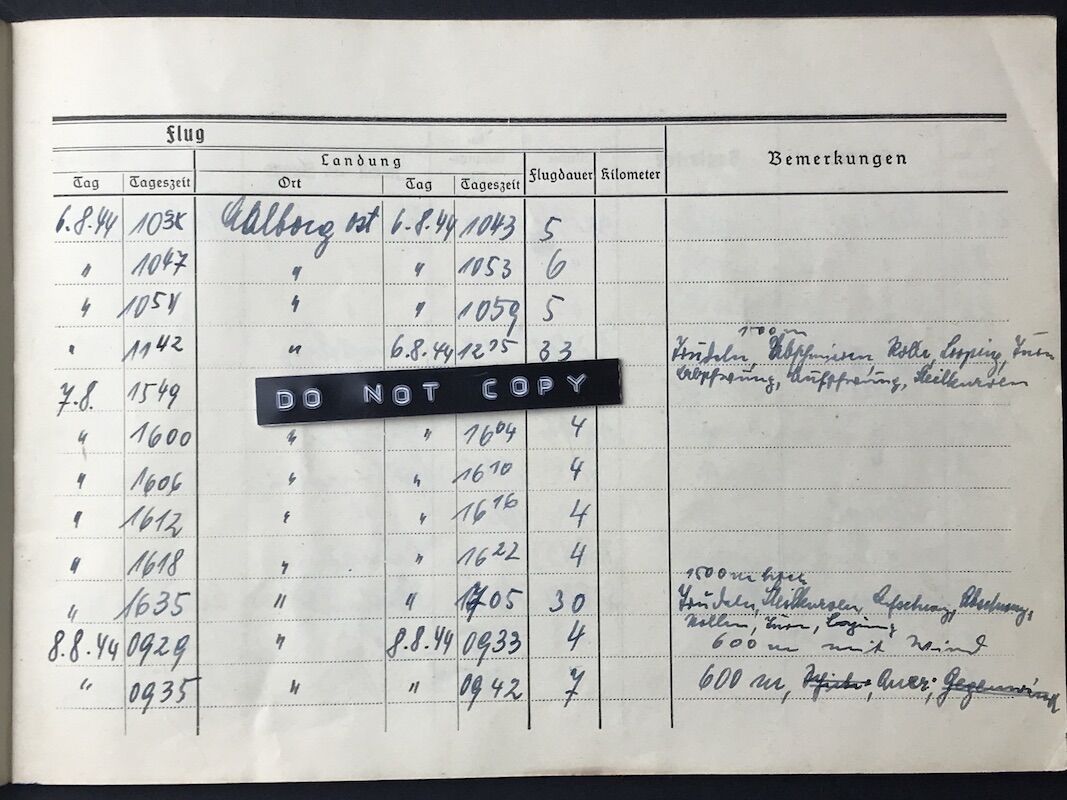 Flug
Landung
Tag Tageszeit Ort Tag Tageszeit Flugdauer Kilometer Bemerkungen
6.8.44 Aalborg ost 6.8.44 1043 5
" 1047 " " 1053 6
" 1054 " " 1059 5
1500 m
" 1142 " 6.8.44 1215 33 Trudeln, Abschmieren, Rolle, Looping, Turn
7.8. 1549 Steilkurven
DO NOT COPY
" 1600 " " 1604 4
" 1606 " " 1610 4
" 1612 " " 1616 4
" 1618 " " 1622 4
1500 m hoch
" 1635 " " 1705 30 Trudeln, Steilkurven
Rollen, Turn, Looping
8.8.44 0929 " 8.8.44 0933 4 600 m mit Wind
" 0935 " " 0942 7 600 m, Quer, Gegenwind